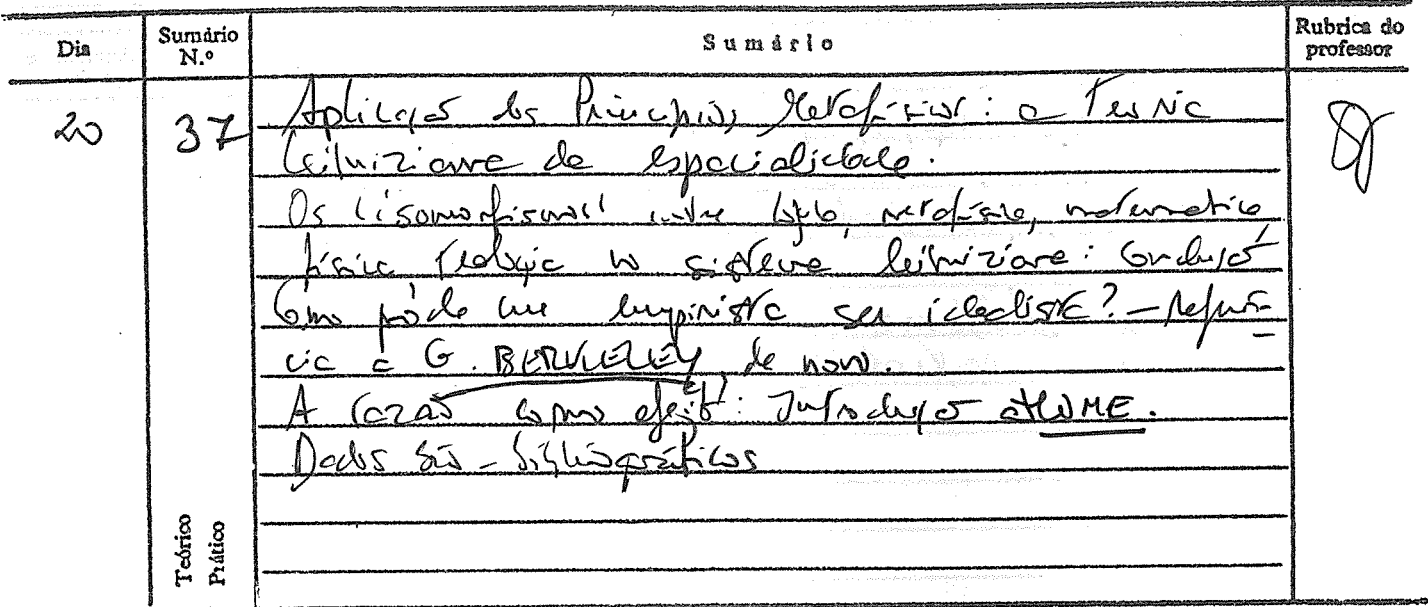 Dia
Sumário N.º
Sumário
Rubrica do professor
20
37
Aplicação dos Princípios Metafísicos: a Teoria
leibniziana da espacialidade.
Os 'isomorfismos' entre lógica, metafísica, matemática
física teologia no sistema leibniziano: Conclusão
Como pode um empirista ser idealista? – Referên-
cia a G. BERKELEY, de novo.
A razão como efeito: Introdução a HUME.
Dados bio-bibliográficos
Teórico
Prático